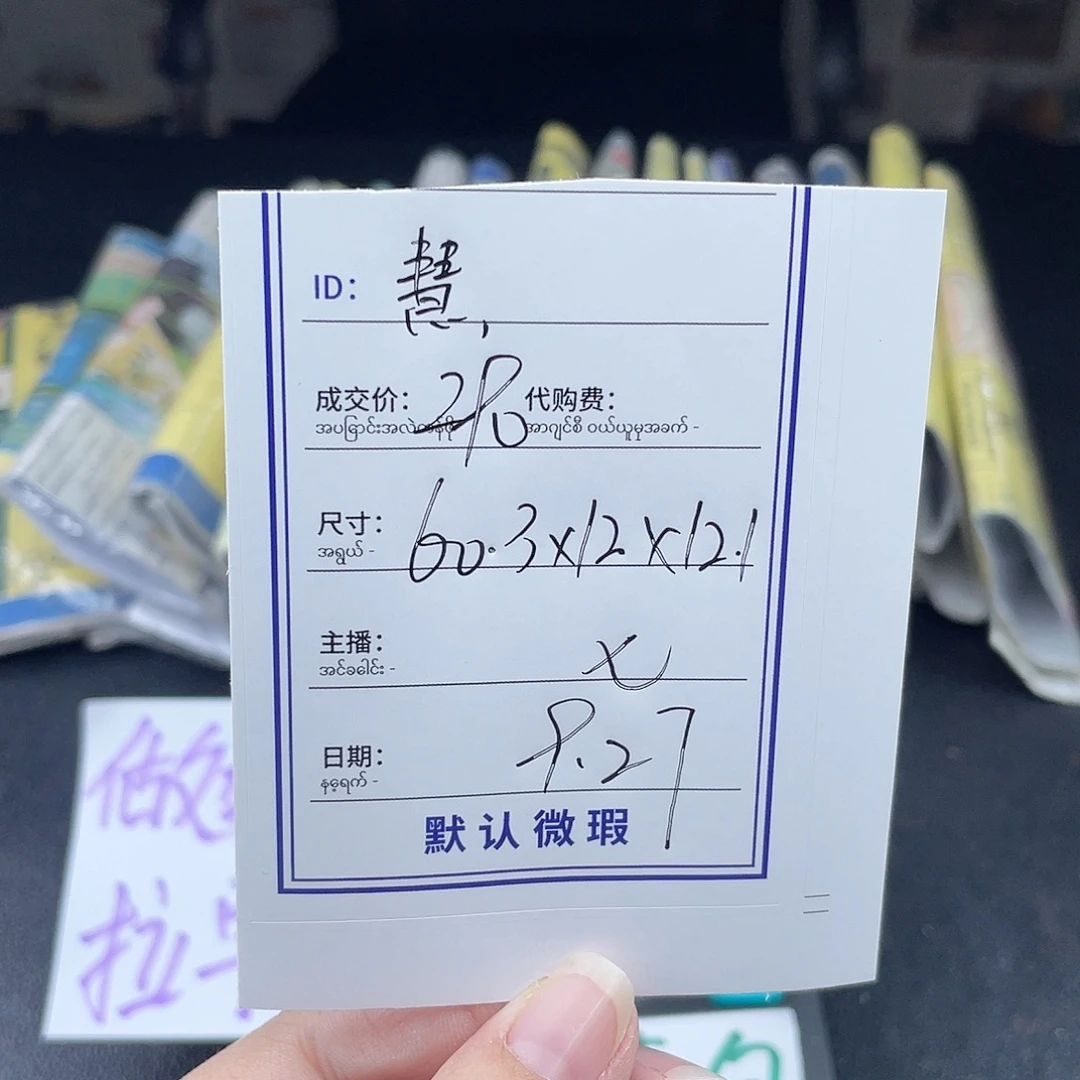 ID: 慧,
成交价: 290 代购费:
အပြောင်းအလဲတန်ဖိုး အာဂျင်စီ ဝယ်ယူမှုအခက် -
尺寸: 60.3x12x12.1
အရွယ် -
主播: 七
အင်ခခေါင်း -
日期: 9.27
နေ့ရက် -
默认微瑕
做
拉